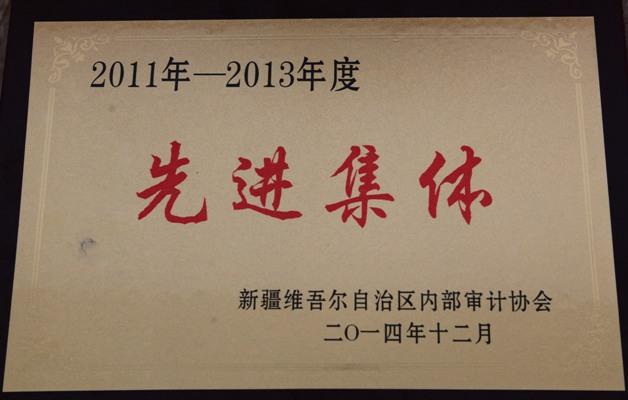 2011年—2013年度
先进集体
新疆维吾尔自治区内部审计协会
二〇一四年十二月